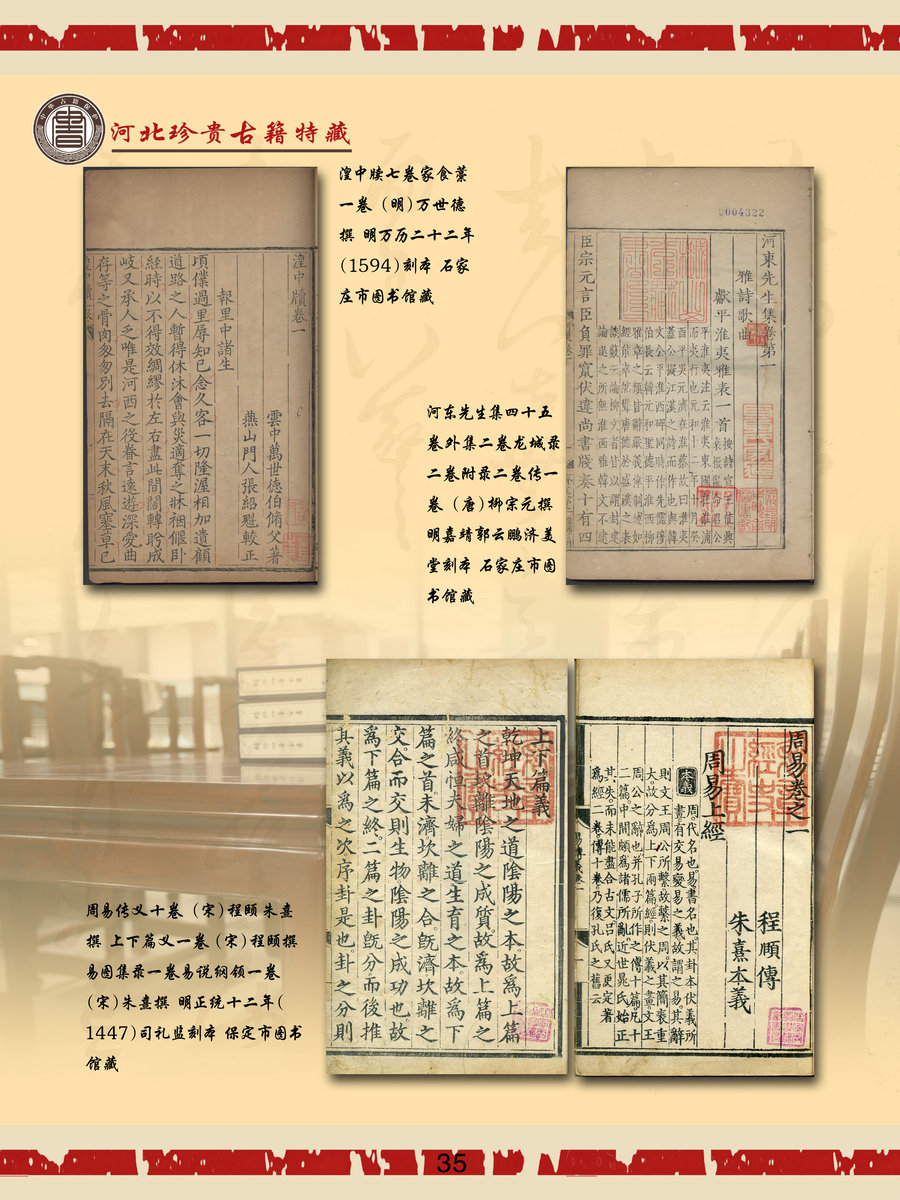 河北珍贵古籍特藏
湟中牍七卷家食藁
一卷 (明)万世德
撰 明万历二十二年
(1594)刻本 石家
庄市图书馆藏
湟中牘卷一
雲中萬世德伯脩父著
燕山門人張紹魁較正
報里中諸生
頃僕過里辱知已念久客一切隆渥相加遺顧
道路之人暫得休沐會與災適奪之牀裀偃卧
經時以不得效綢繆於左右盡此間闊轉盻成
岐又承人乏唯是河西之役眷言遠遊深愛曲
存等之骨肉匆匆别去隔在天末秋風塞草已
0004322
河東先生集卷第一
雅詩歌曲
獻平淮夷雅表一首
臣宗元言臣負罪竄伏違尚書牋奏十有四
河东先生集四十五
卷外集二卷龙城录
二卷附录二卷传一
卷 (唐)柳宗元撰
明嘉靖郭云鹏济美
堂刻本 石家庄市图
书馆藏
上下篇義
乾坤天地之道陰陽之本故爲上篇
之首坎離陰陽之成質故爲上篇之
終咸恒夫婦之道生育之本故爲下
篇之首未濟坎離之合旣濟坎離之
交合而交則生物陰陽之成功也故
爲下篇之終二篇之卦旣分而後推
其義以爲之次序卦是也卦之分則
周易卷之一
程頤傳
朱熹本義
周易上經
本義
周代名也易書名也其卦本伏羲所
畫有交易變易之義故謂之易其辭
則文王周公所繫故繫之周以其簡袠重
大故分爲上下兩篇經則伏羲之畫文王
周公之辭也并孔子所作之傳十篇凡十
二篇中間頗爲諸儒所亂近世晁氏始正
其失而未能盡合古文吕氏又更定著
爲經二卷傳十卷乃復孔氏之舊云
周易传义十卷 (宋)程颐 朱熹
撰 上下篇义一卷 (宋)程颐撰
易图集录一卷易说纲领一卷
(宋)朱熹撰 明正统十二年(
1447)司礼监刻本 保定市图书
馆藏
35